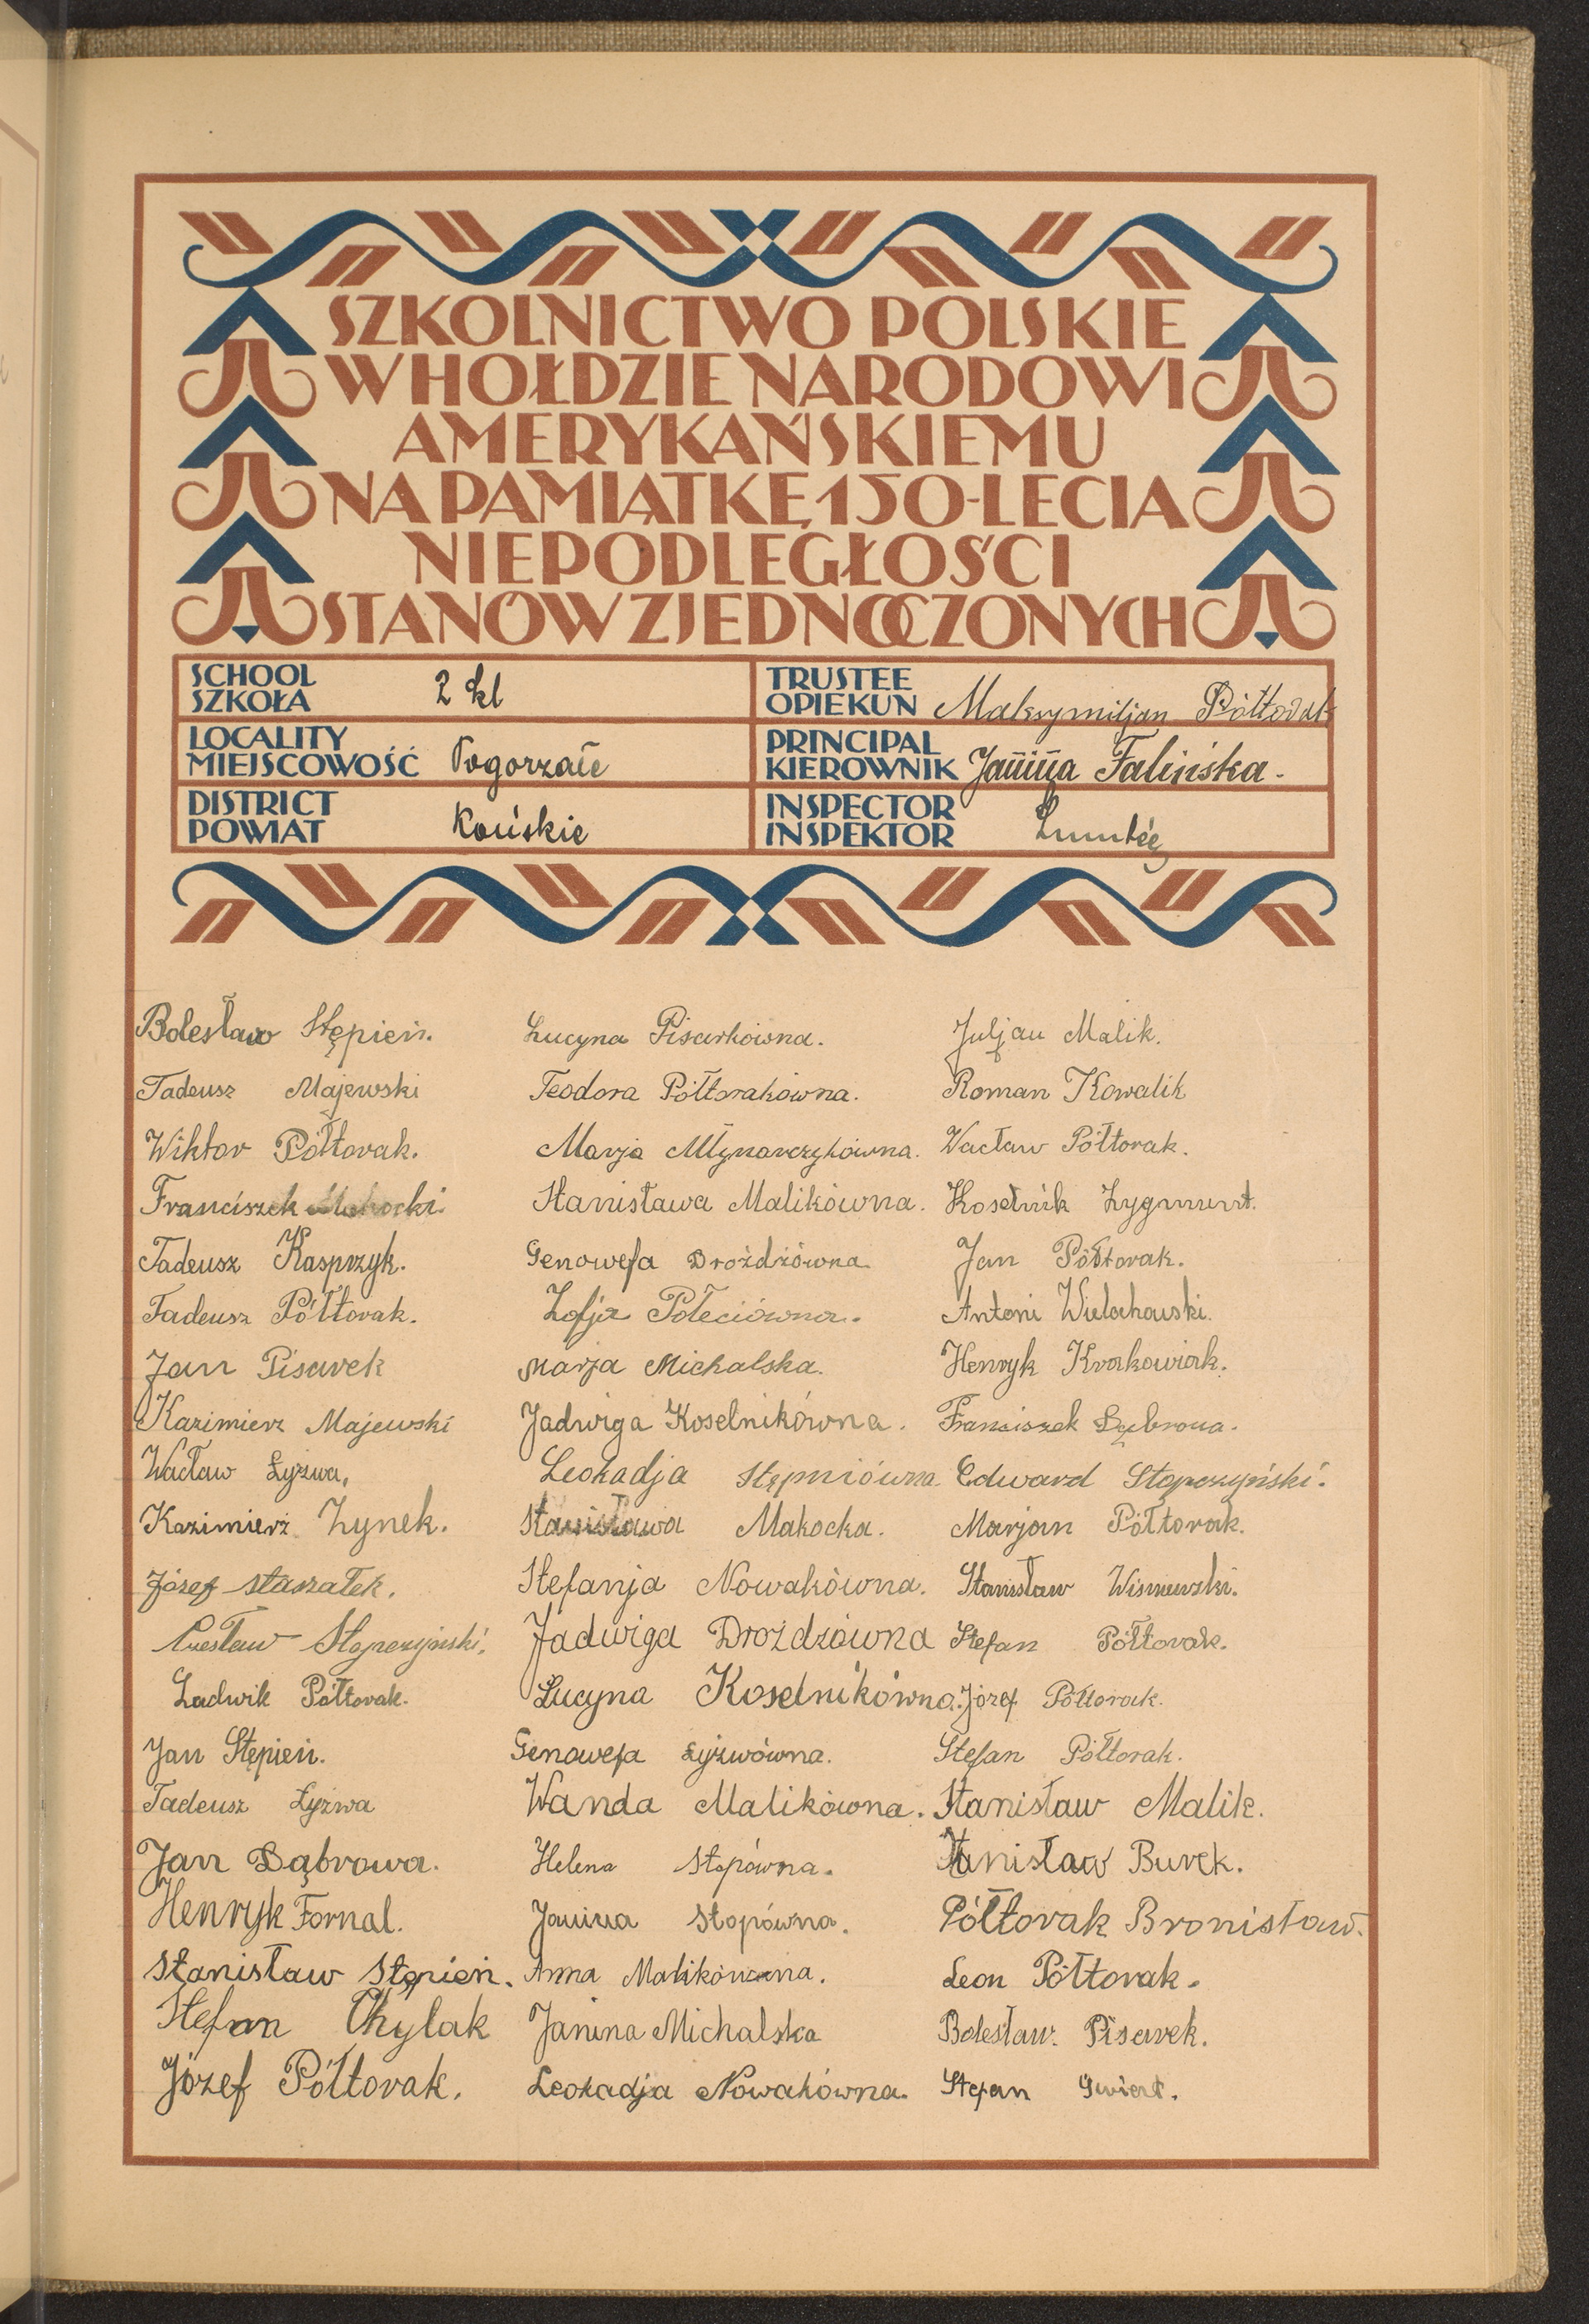 SZKOLNICTWO POLSKIE
W HOŁDZIE NARODOWI
AMERYKAŃSKIEMU
NA PAMIĄTKĘ 150-LECIA
NIEPODLEGŁOŚCI
STANÓW ZJEDNOCZONYCH
SCHOOL
SZKOŁA
2 kl
TRUSTEE
OPIEKUN
Maksymiljan Półtorak
LOCALITY
MIEJSCOWOŚĆ
Pogorzałe
PRINCIPAL
KIEROWNIK
Janina Falińska.
DISTRICT
POWIAT
Końskie
INSPECTOR
INSPEKTOR
Bolesław Stępień.
Tadeusz Majewski
Wiktor Półtorak.
Franciszek Makocki.
Tadeusz Kasprzyk.
Tadeusz Półtorak.
Jan Pisarek
Kazimierz Majewski
Wacław Łyżwa.
Kazimierz Zynek.
Józef Staszałek.
Czesław Stąporzyński.
Ludwik Półtorak.
Jan Stępień.
Tadeusz Łyżwa
Jan Dąbrowa.
Henryk Fornal.
Stanisław Stępień.
Stefan Chylak
Józef Półtorak.
Lucyna Pisarkówna.
Teodora Półtorakówna.
Marja Młynarczykówna.
Stanisława Malikówna.
Genowefa Drożdżówna
Zofja Połeciówna.
Marja Michalska.
Jadwiga Koselnikówna.
Leokadja Stępniówna.
Stanisława Makocka.
Stefanja Nowakówna.
Jadwiga Drożdżówna
Lucyna Koselnikówna.
Genowefa Łyżwówna.
Wanda Malikówna.
Helena Stopówna.
Janina Stopówna.
Anna Malikówna.
Janina Michalska
Leokadja Nowakówna.
Juljan Malik.
Roman Kowalik
Wacław Półtorak.
Koselnik Zygmunt.
Jan Półtorak.
Antoni Wielochowski.
Henryk Krakowiak.
Franciszek Dąbrowa.
Edward Stąporzyński.
Marjan Półtorak.
Stanisław Wiśniewski.
Stefan Półtorak.
Józef Półtorak.
Stefan Półtorak.
Stanisław Malik.
Stanisław Burek.
Półtorak Bronisław.
Leon Półtorak.
Bolesław. Pisarek.
Stefan Gwiert.